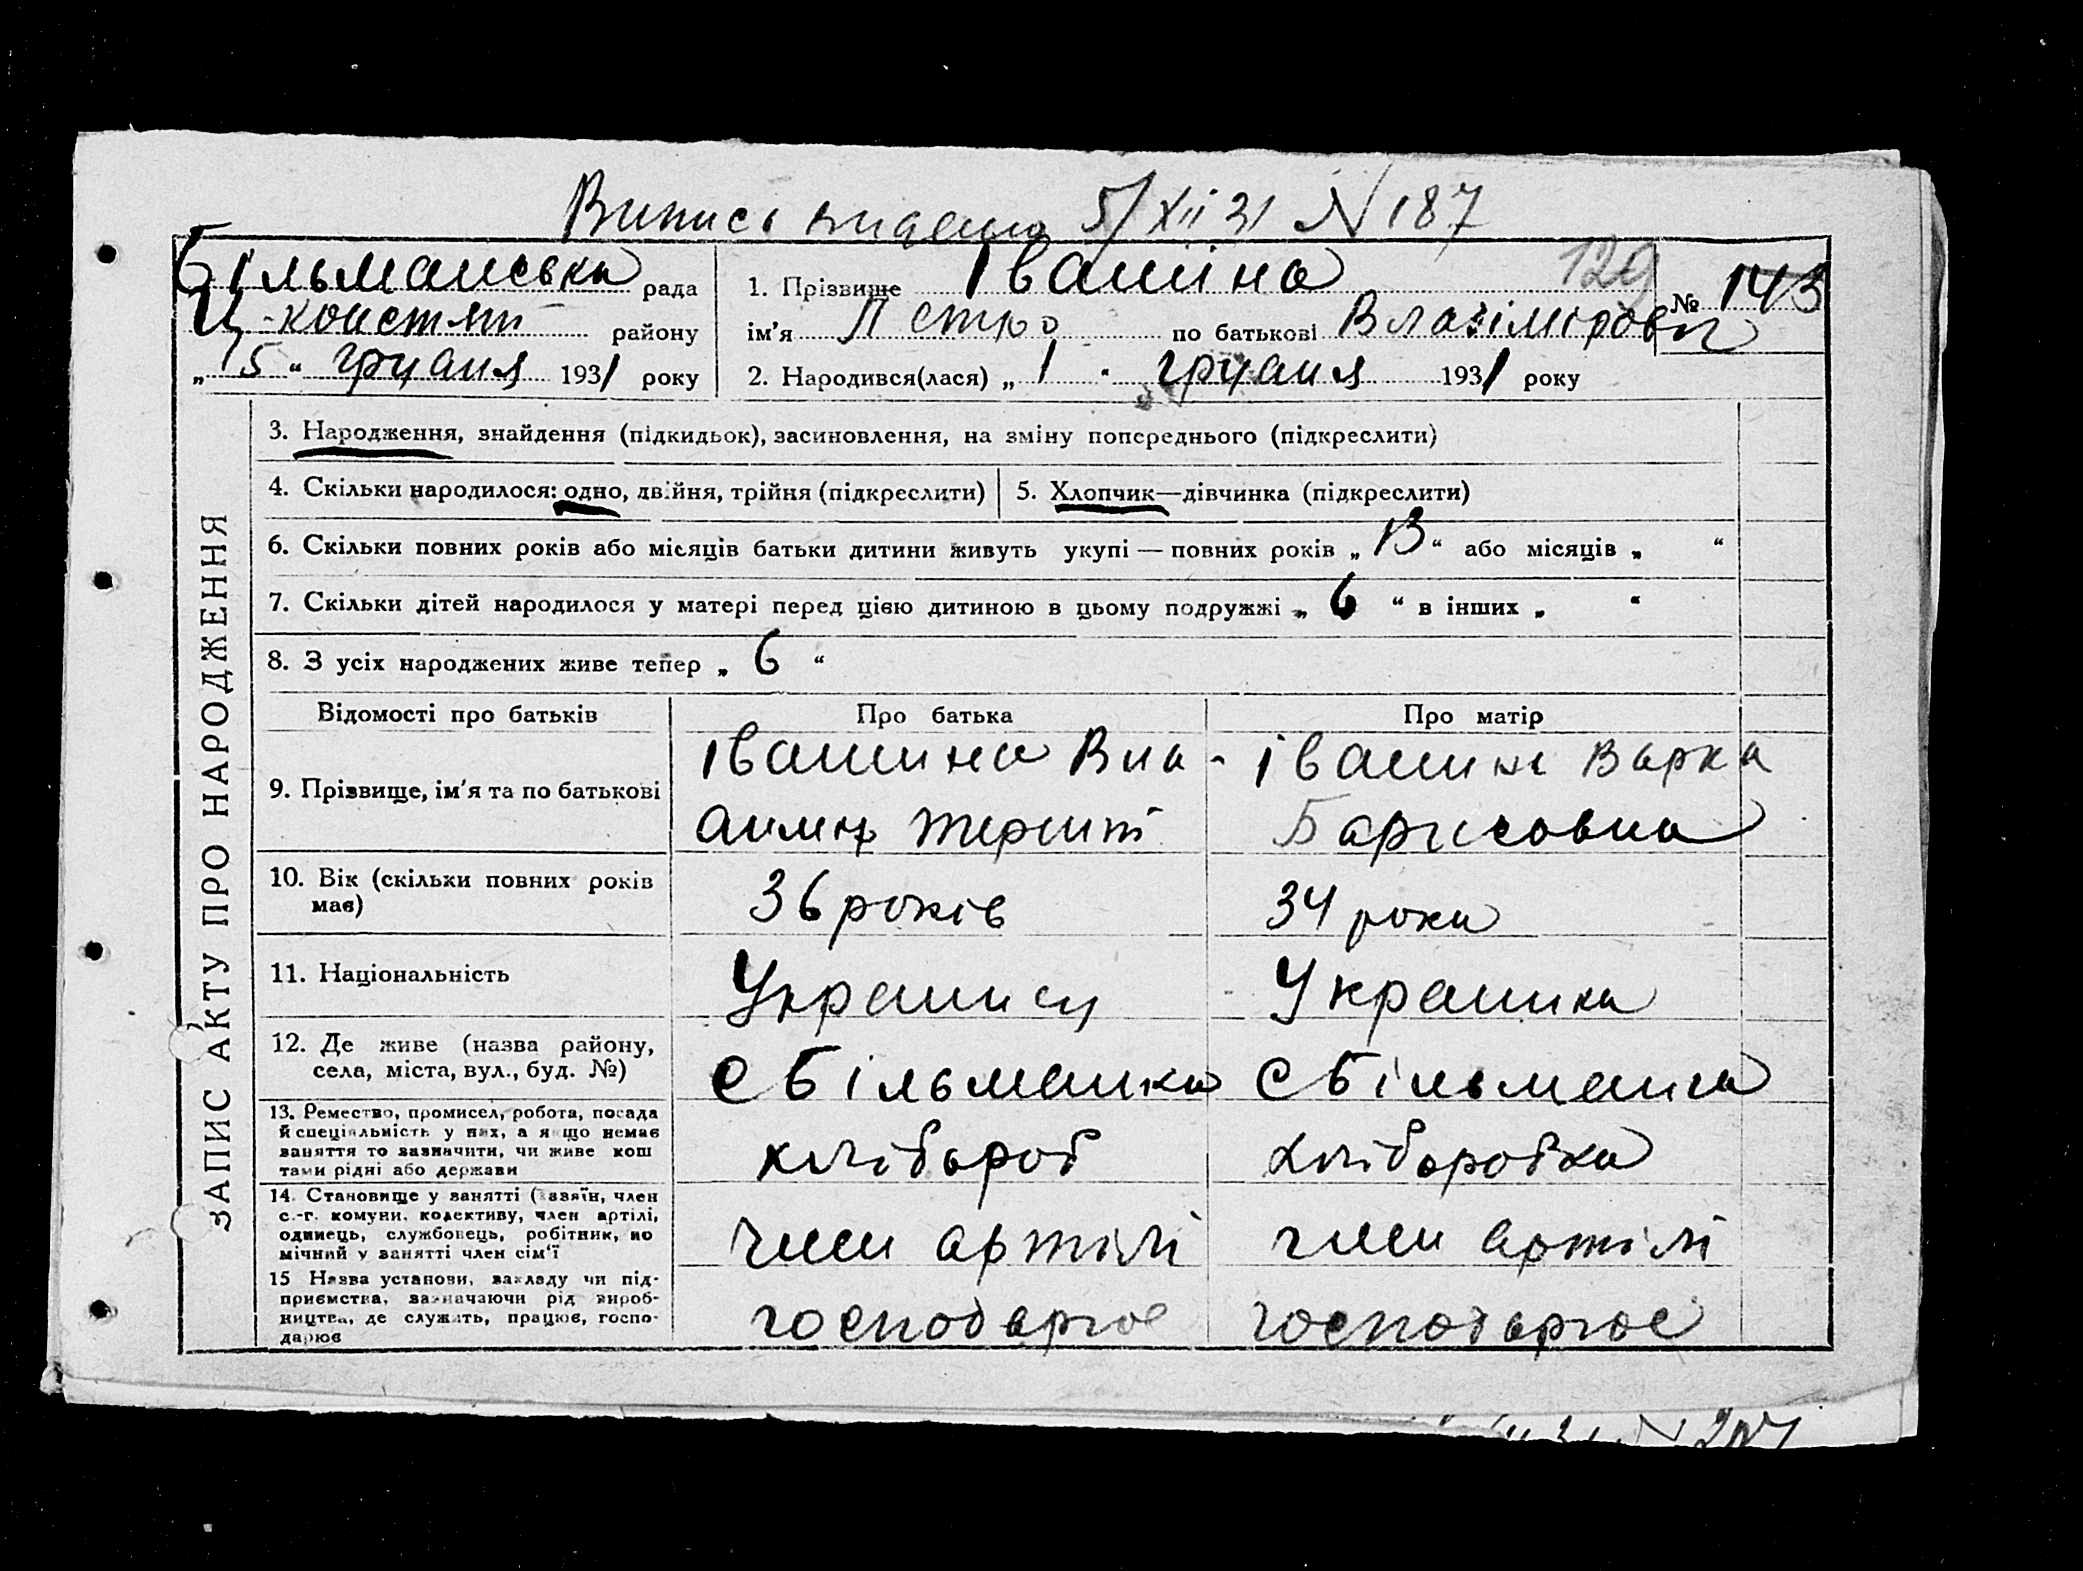 Випись видана 5/XII 31 N 187
Більманська рада
Ц-констят району
„15“ грудня 1931 року
1. Прізвище Івашина
129
№ 143
ім'я Петро по батькові Владіміровіч
2. Народився(лася) „1“ грудня 1931 року
ЗАПИС АКТУ ПРО НАРОДЖЕННЯ
3. Народження, знайдення (підкидьок), засиновлення, на зміну попереднього (підкреслити)
4. Скільки народилося: одно, двійня, трійня (підкреслити)
5. Хлопчик—дівчинка (підкреслити)
6. Скільки повних років або місяців батьки дитини живуть укупі — повних років „13“ або місяців „ “
7. Скільки дітей народилося у матері перед цією дитиною в цьому подружжі „ 6 “ в інших „ “
8. З усіх народжених живе тепер „ 6 “
Відомості про батьків
Про батька
Про матір
9. Прізвище, ім'я та по батькові
Івашина Вла-
Івашина Варка
Барисовна
10. Вік (скільки повних років
має)
36 років
34 роки
11. Національність
Украинец
Украинка
12. Де живе (назва району,
села, міста, вул., буд. №)
с Більманка
с Більманка
13. Ремество, промисел, робота, посада
й спеціяльність у них, а якщо немає
заняття то зазначити, чи живе кош
тами рідні або держави
хлібороб
хліборобка
14. Становище у занятті (хазяїн, член
с.-г. комуни, колективу, член артілі,
одинець, службовець, робітник, по
мічний у занятті член сім'ї
член артілі
член артілі
15 Назва установи, закладу чи під-
приємства, зазначаючи рід вироб-
ництва, де служить, працює, госпо-
дарює
господарює
господарює